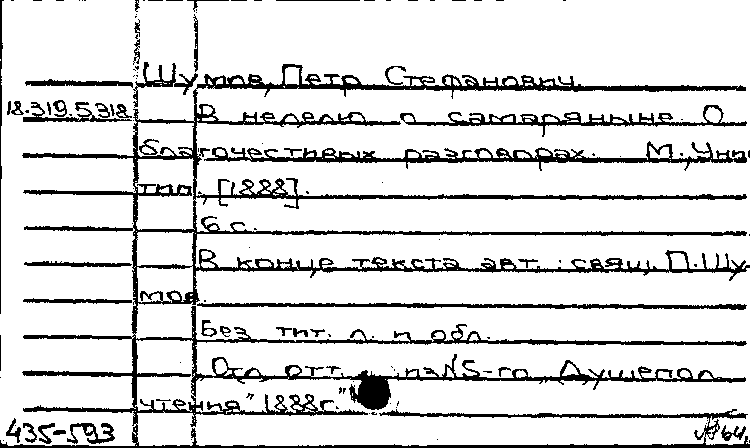 Шумов, Петр Стефанович
18.319.5.318 В неделю о самаряныне. О
благочестивых разговорах. М., Унив.
тип., [1888].
6 с.
В конце текста авт.: свящ. П. Шу-
мов.
Без тит. л. и обл.
Отд. отт. из №5-го „Душепол.
чтения" 1888г."
435-593